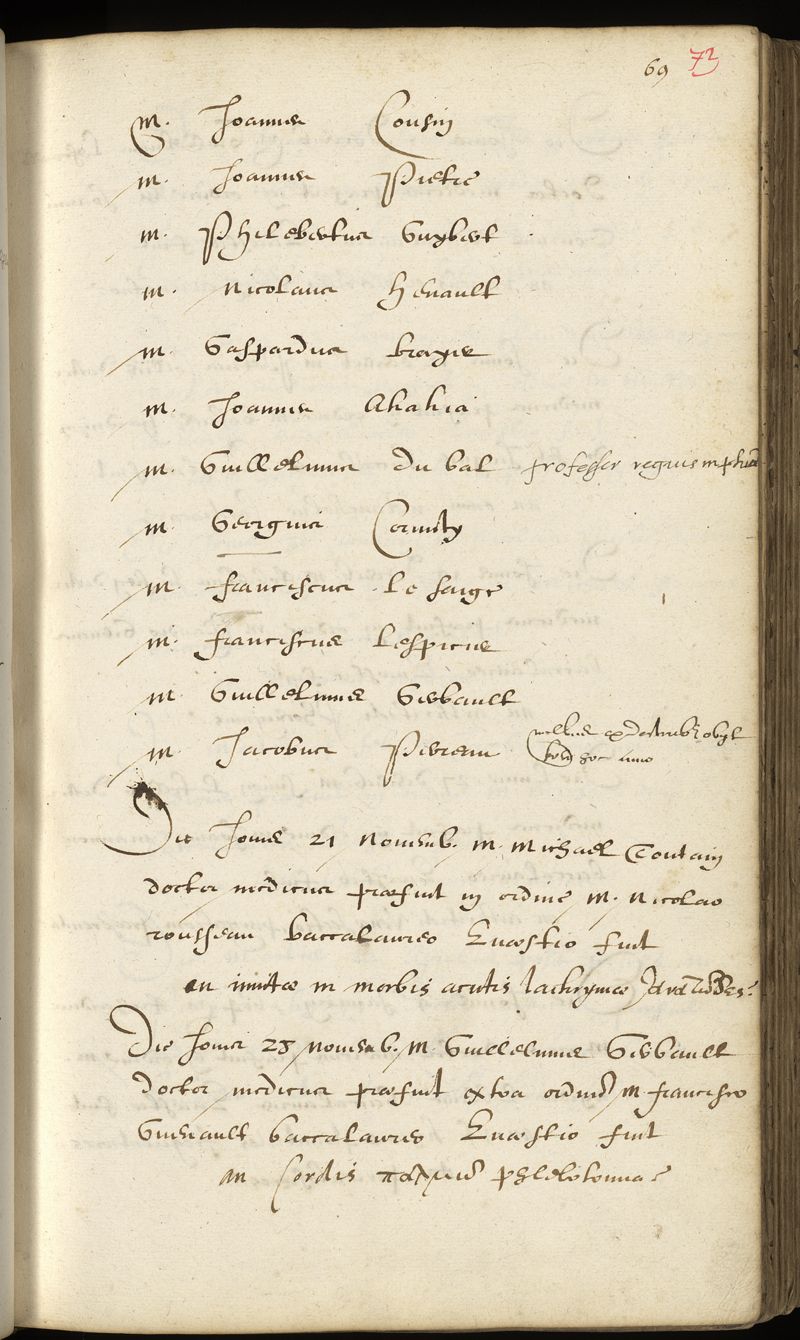 69 73
M. Joannes Cousin
M. Joannes Pietre
M. Philebertus Guybert
M. Nicolaus Henault
M. Gaspardus brayer
M. Joannes Akakia
M. Guillelmus du Val professor regius in
M. Georgius Cornuty
M. franciscus le Saige
M. franciscus Lespicier
M. Guillelmus Gerbault
M. Jacobus Perreau obijt
hoc anno
Die Jovis 21 Novemb. M. Michael Toutain
doctor medicus præfuit in ordine M. Nicolao
rousseau baccalaureo Quæstio fuit
an invitæ in morbis acutis lachrymæ
Die Jovis 28 Novemb. M. Guillelmus Gerbault
doctor medicus præfuit extra ordinē M. francisco
Guenault baccalaureo Quæstio fuit
an Cordis